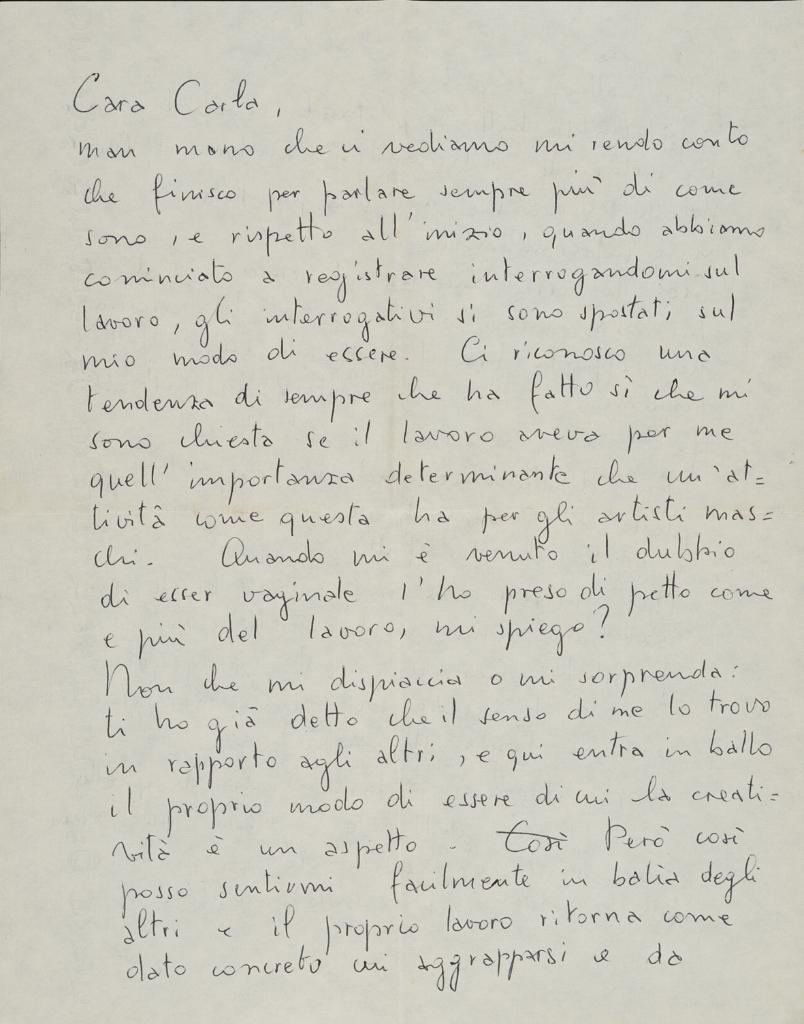 Cara Carla,
man mano che ci vediamo mi rendo conto
che finisco per parlare sempre più di come
sono, e rispetto all'inizio, quando abbiamo
cominciato a registrare interrogandomi sul
lavoro, gli interrogativi si sono spostati sul
mio modo di essere. Ci riconosco una
tendenza di sempre che ha fatto sì che mi
sono chiesta se il lavoro aveva per me
quell'importanza determinante che un'at=
tività come questa ha per gli artisti mas=
chi. Quando mi è venuto il dubbio
di esser vaginale l'ho preso di petto come
e più del lavoro, mi spiego?
Non che mi dispiaccia o mi sorprenda:
ti ho già detto che il senso di me lo trovo
in rapporto agli altri, e qui entra in ballo
il proprio modo di essere di cui la creati=
vità è un aspetto. Così Però così
posso sentirmi facilmente in balìa degli
altri e il proprio lavoro ritorna come
dato concreto cui aggrapparsi e da